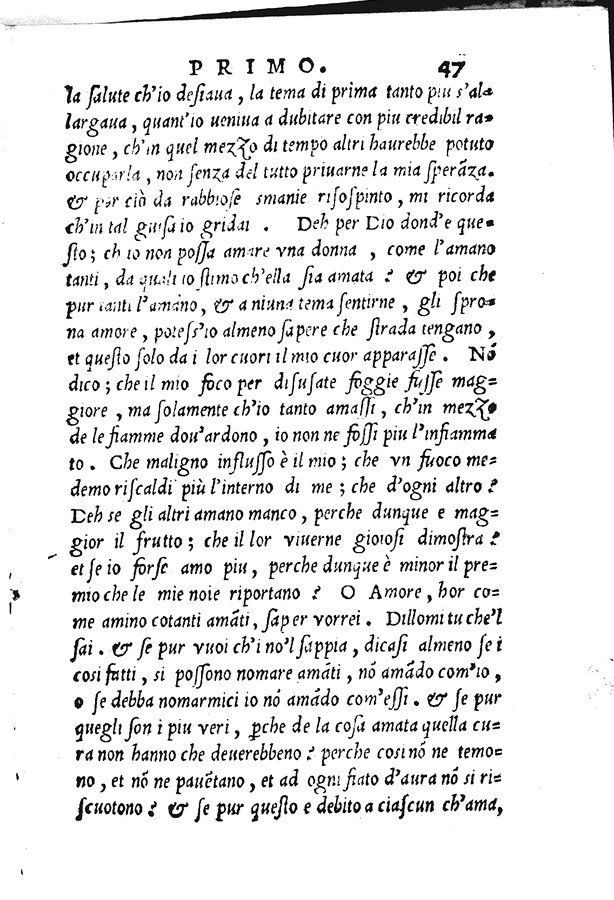 PRIMO. 47
la ſalute ch'io deſiaua, la tema di prima tanto piu s'al⸗
largaua, quant'io ueniua a dubitare con piu credibil ra⸗
gione, ch'in quel mezzo di tempo altri haurebbe potuto
occuparla, non ſenza del tutto priuarne la mia ſperãza.
& per ciò da rabbioſe smanie riſoſpinto, mi ricorda
ch'in tal guiſa io gridai. Deh per Dio dond'e que⸗
ſto; ch io non poſſa amare vna donna, come l'amano
tanti, da quali io ſtimo ch'ella ſia amata? & poi che
pur tanti l'amano, & a niuna tema ſentirne, gli spro⸗
na amore, poteſs'io almeno ſapere che ſtrada tengano,
et queſto ſolo da i lor cuori il mio cuor apparaſſe. Nõ
dico; che il mio foco per diſuſate foggie fuſſe mag⸗
giore, ma ſolamente ch'io tanto amaſſi, ch'in mezzo
de le fiamme dou'ardono, io non ne foſſi piu l'infiamma
to. Che maligno influſſo è il mio; che vn fuoco me⸗
demo riſcaldi più l'interno di me; che d'ogni altro?
Deh se gli altri amano manco, perche dunque e mag⸗
gior il frutto; che il lor viuerne gioioſi dimoſtra?
et ſe io forſe amo piu, perche dunque è minor il pre⸗
mio che le mie noie riportano? O Amore, hor co⸗
me amino cotanti amãti, ſaper vorrei. Dillomi tu che'l
ſai. & ſe pur vuoi ch'i no'l ſappia, dicaſi almeno ſe i
coſi fatti, si poſſono nomare amãti, nõ amãdo com'io,
o ſe debba nomarmici io nõ amãdo com'eſſi. & ſe pur
quegli ſon i piu veri, ꝑche de la coſa amata quella cu⸗
ra non hanno che deuerebbeno? perche coſi nõ ne temo⸗
no, et nõ ne pauẽtano, et ad ogni fiato d'aura nõ si ri⸗
ſcuotono? & ſe pur queſto e debito a ciaſcun ch'ama,